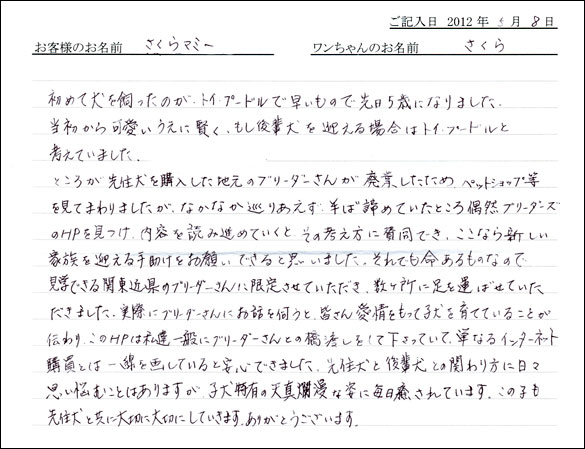 ご記入日 2012 年 月 8 日
お客様のお名前 さくらマミー ワンちゃんのお名前 さくら
初めて犬を飼ったのが、トイ・プードルで早いもので先日5歳になりました。
当初から可愛いうえに賢く、もし後輩犬を迎える場合はトイ・プードルと
考えていました。
ところが先住犬を購入した地元のブリーダーさんが廃業したため、ペットショップ等
を見てまわりましたが、なかなか巡りあえず、半ば諦めていたところ偶然ブリーダーズ
のHPを見つけ、内容を読み進めていくと、その考え方に賛同でき、ここなら新しい
家族を迎える手助けをお願いできると思いました。それでも命あるものなので
見学できる関東近県のブリーダーさんに限定させていただき、数ヶ所に足を運ばせていた
だきました。実際にブリーダーさんにお話を伺うと、皆さん愛情をもって子犬を育てていることが
伝わり、このHPは私達一般にブリーダーさんとの橋渡しをして下さっていて、単なるインターネット
購買とは一線を画していると安心できました。先住犬と後輩犬との関わり方に日々
思い悩むことはありますが、子犬特有の天真爛漫な姿に毎日癒されています。この子も
先住犬と共に大切に大切にしていきます。ありがとうございます。